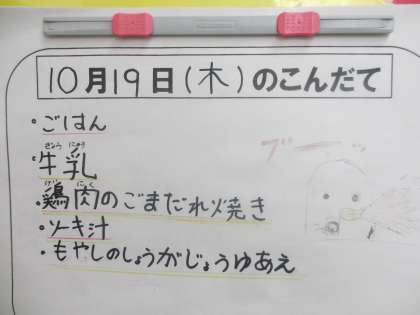 10月19日(木)のこんだて
・ごはん
ぎゅう にゅう
・牛乳
けい にく
・鶏肉のごまだれ焼き
・ソーキ汁
・もやしのしょうがじょうゆあえ
ブーッ